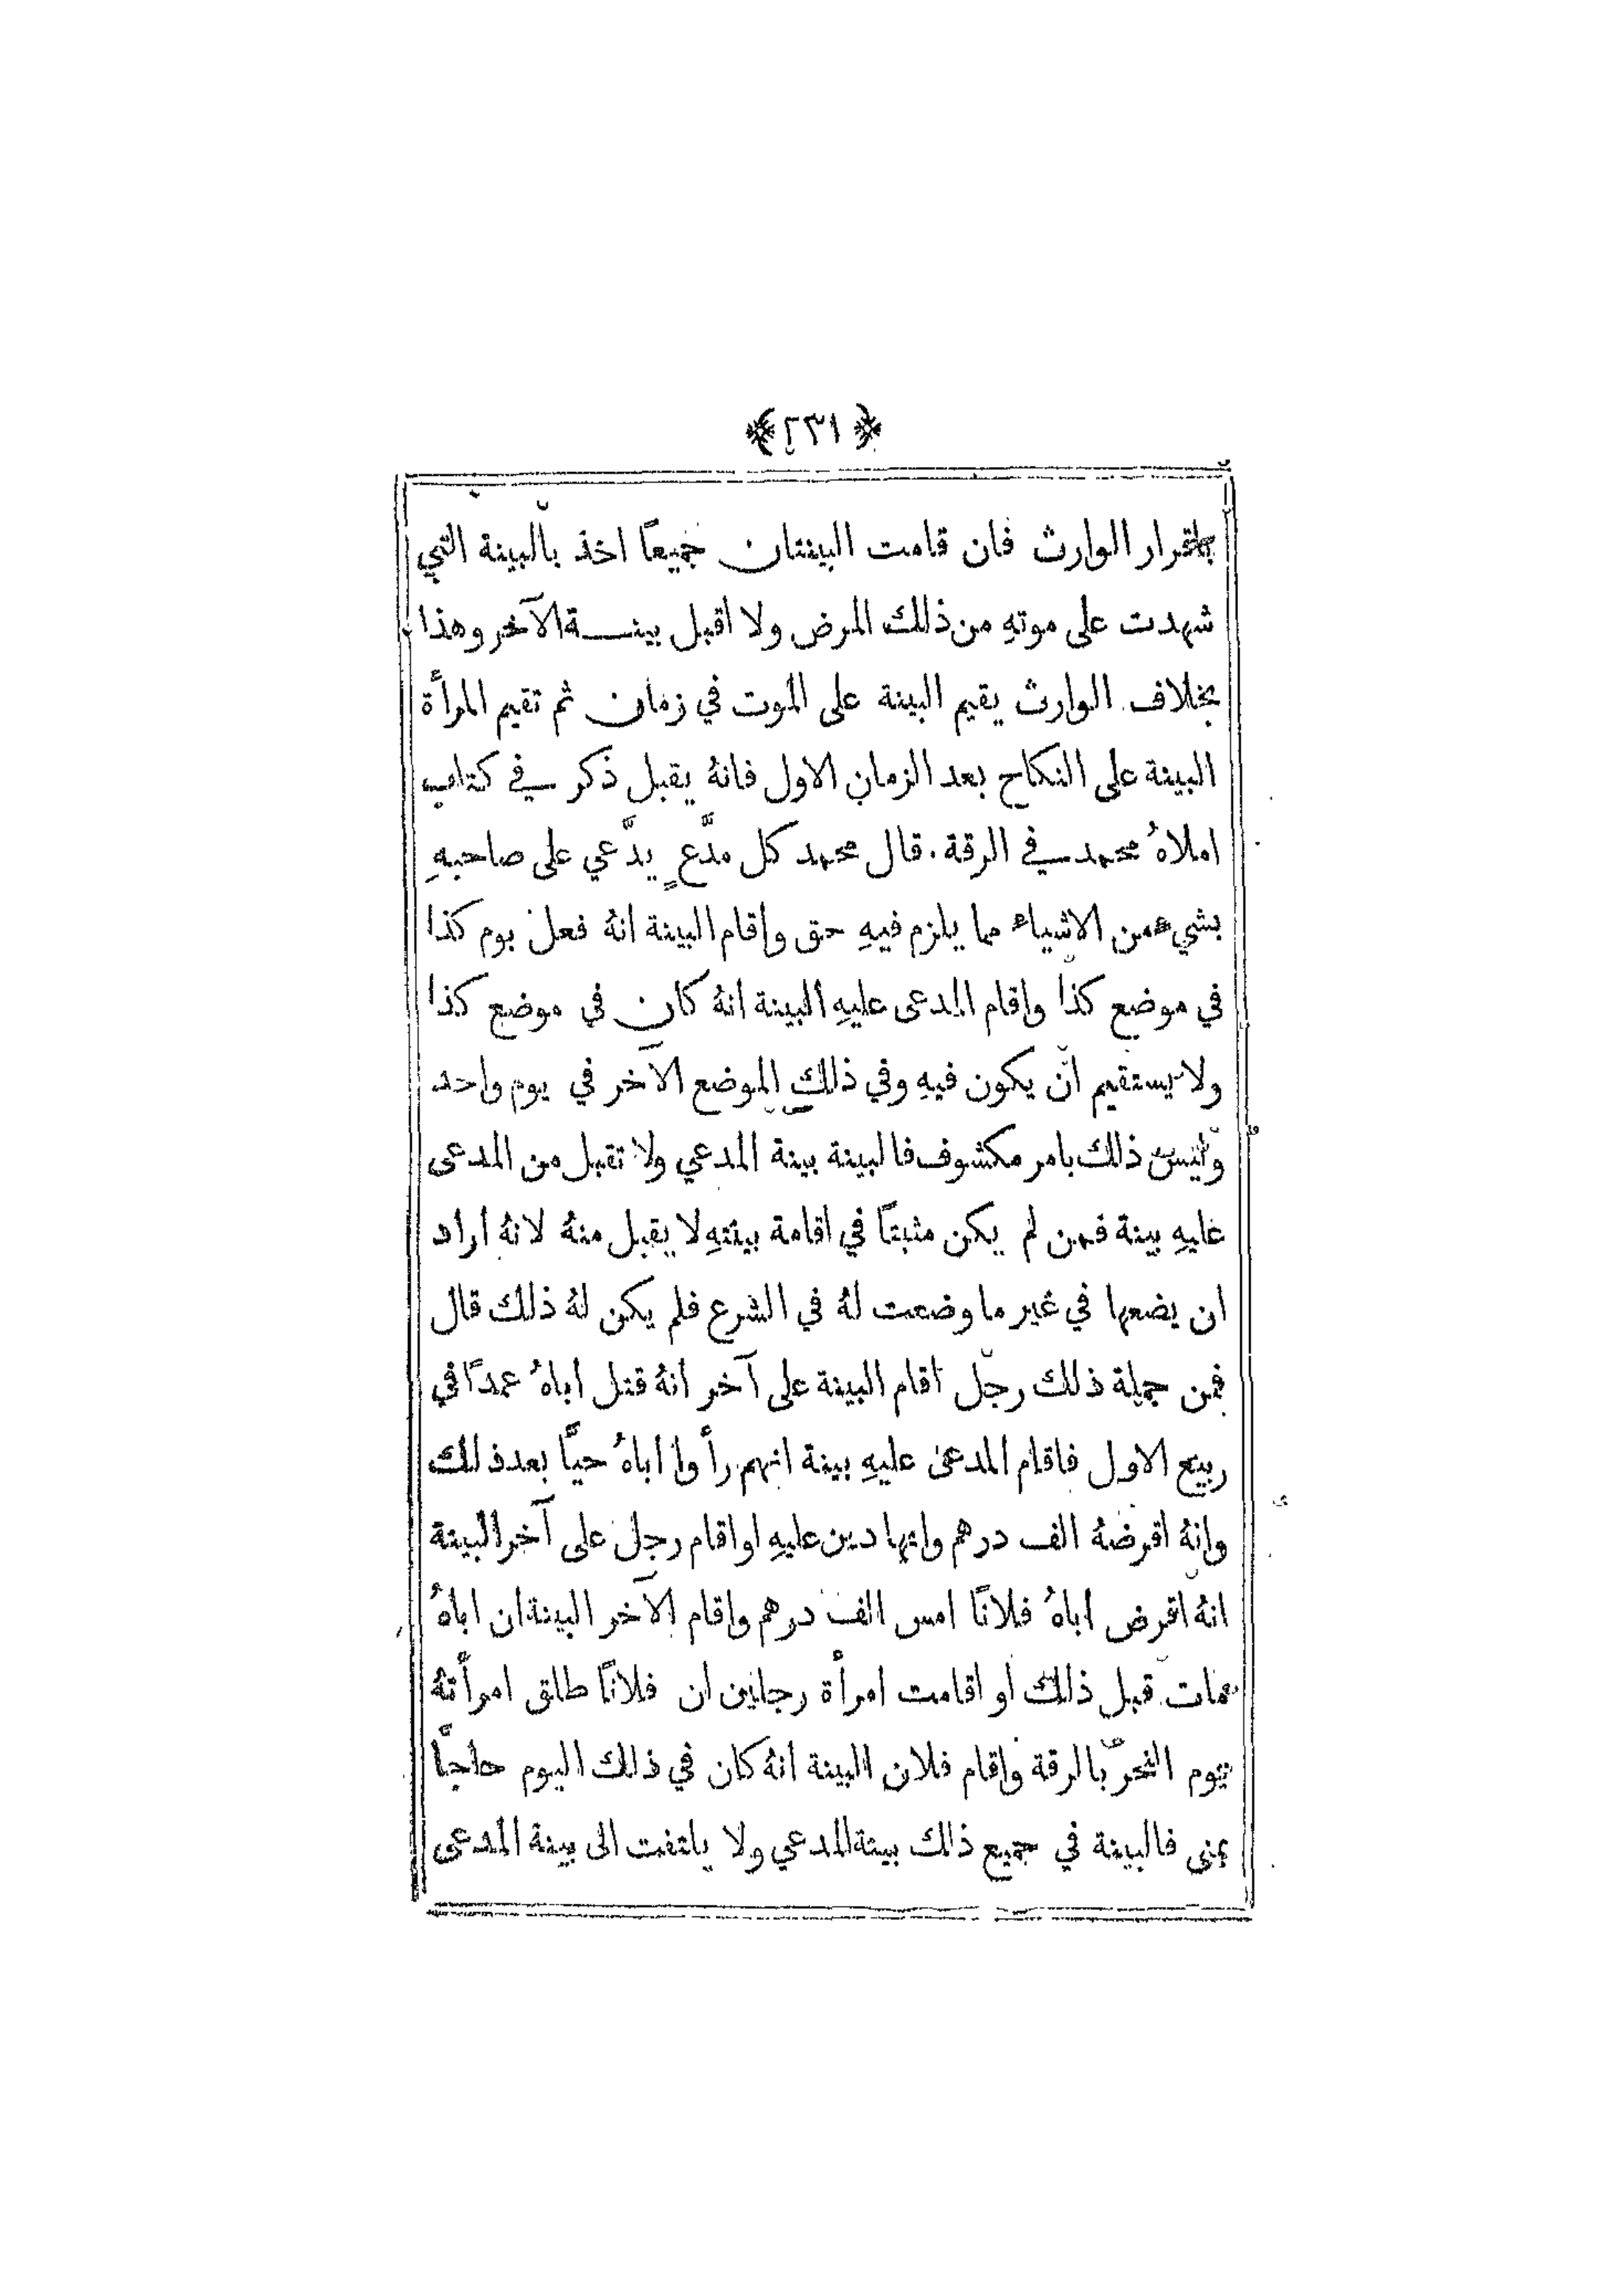 ﴿ ٢٣١ ﴾
باقرار الوارث فان قامت البينتان جميعًا اخذ بالبينة التي
شهدت على موتهِ من ذلك المرض ولا اقبل بينة الآخر وهذا
بخلاف الوارث يقيم البينة على الموت في زمان ثم تقيم المرأة
البينة على النكاح بعد الزمان الاول فانهُ يقبل ذكر في كتاب
املاهُ محمد في الرقة . قال محمد كل مدَّعٍ يدَّعي على صاحبهِ
بشيء من الاشياء مما يلزم فيهِ حق واقام البينة انهُ فعل يوم كذا
في موضع كذا واقام المدعى عليهِ البينة انهُ كان في موضع كذا
ولا يستقيم ان يكون فيهِ وفي ذلك الموضع الآخر في يوم واحد
وليس ذلك بامر مكشوف فالبينة بينة المدعي ولا تقبل من المدعى
عليهِ بينة فمن لم يكن مثبتًا في اقامة بينتهِ لا يقبل منهُ لانهُ اراد
ان يضعها في غير ما وضعت لهُ في الشرع فلم يكن لهُ ذلك قال
فمن جملة ذلك رجل اقام البينة على آخر انهُ قتل اباهُ عمدًا في
ربيع الاول فاقام المدعى عليهِ بينة انهم رأوا اباهُ حيًّا بعد ذلك
وانهُ اقرضهُ الف درهم وانها دين عليهِ او اقام رجل على آخر البينة
انهُ اقرض اباهُ فلانًا امس الف درهم واقام الآخر البينة ان اباهُ
مات قبل ذلك او اقامت امرأة رجلين ان فلانًا طلق امرأتهُ
يوم النحر بالرقة واقام فلان البينة انهُ كان في ذلك اليوم حاجًّا
بمنى فالبينة في جميع ذلك بينة المدعي ولا يلتفت الى بينة المدعى